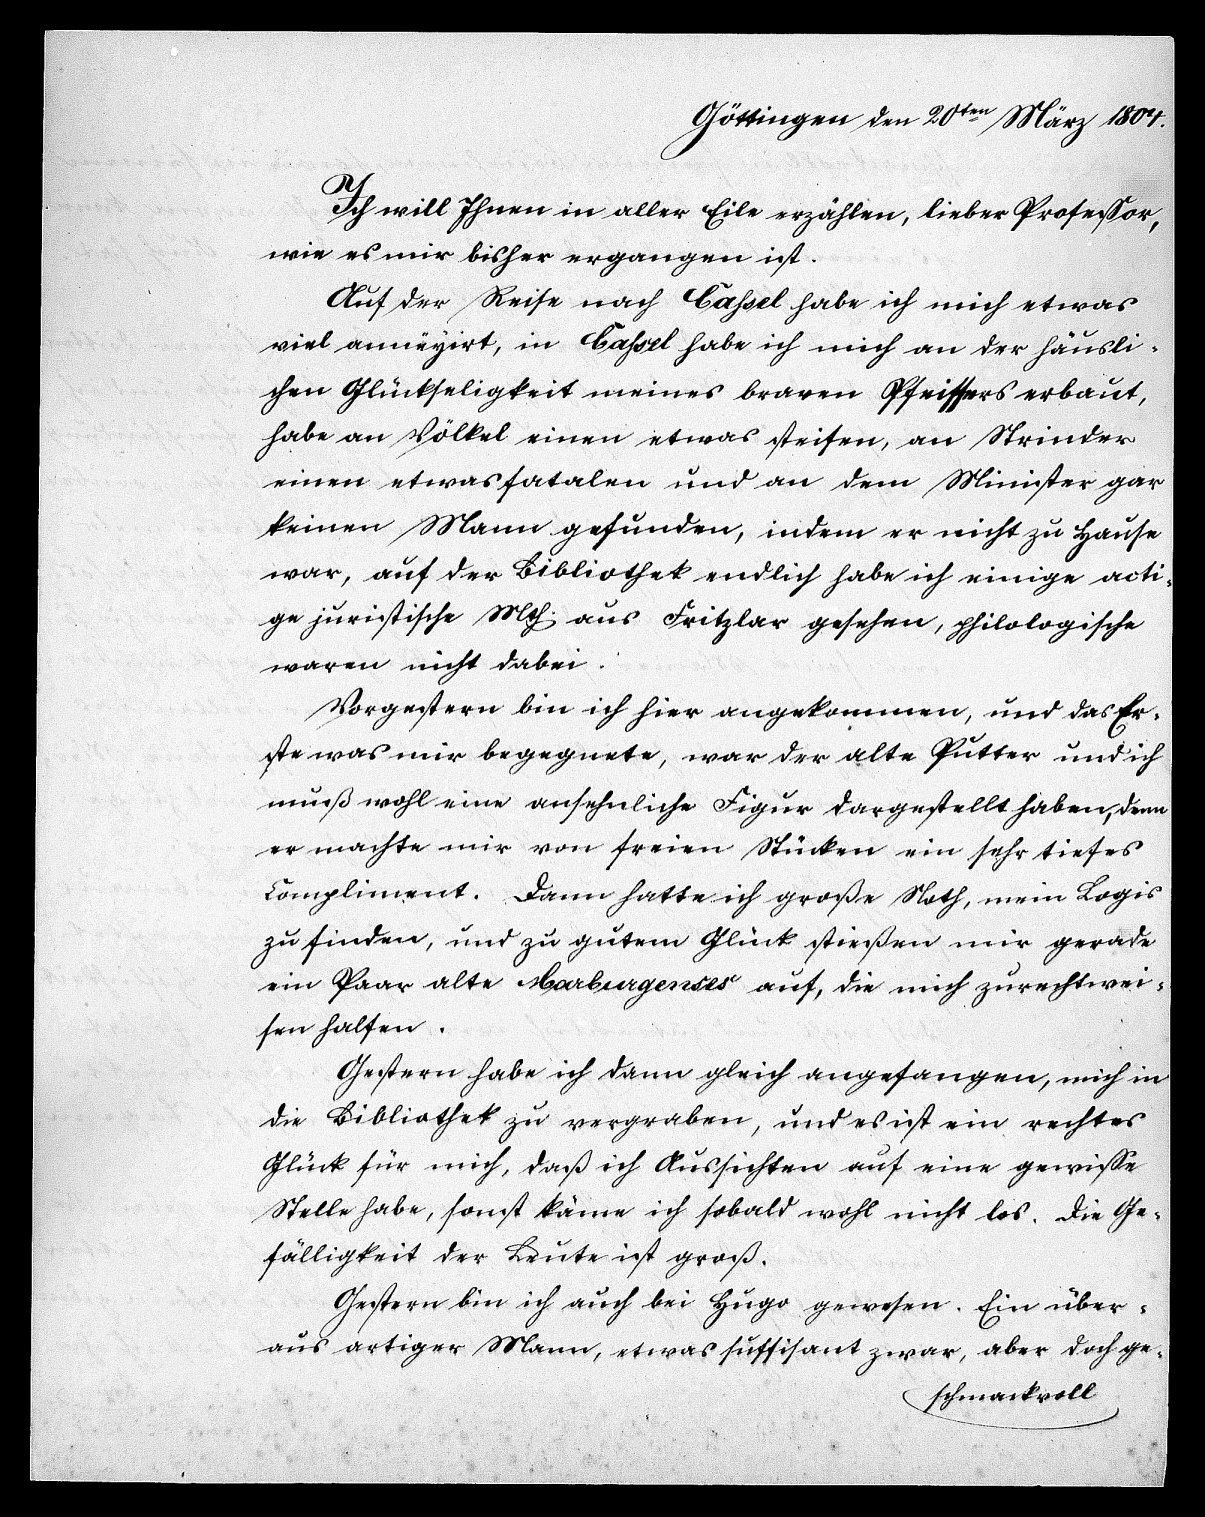 Göttingen den 20ten März 1804.
Ich will Ihnen in aller Eile erzählen, lieber Professor,
wie es mir bisher ergangen ist.
Auf der Reise nach Cassel habe ich mich etwas
viel annüyirt, in Cassel habe ich mich an der häusli-
chen Glückseligkeit meines braven Pfeiffers erbaut,
habe an Völkel einen etwas steifen, an Strieder
einen etwas fatalen und an dem Minister gar
keinen Mann gefunden, indem er nicht zu Hause
war, auf der Bibliothek endlich habe ich einige arti-
ge juristische aus Fritzlar gesehen, philologische
waren nicht dabei.
Vorgestern bin ich hier angekommen, und das Er-
ste was mir begegnete, war der alte Pütter und ich
muß wohl eine ansehnliche Figur dargestellt haben, denn
er machte mir von freien Stücken ein sehr tiefes
Compliment. Dann hatte ich große Noth, mein Logis
zu finden, und zu gutem Glück stießen mir gerade
ein Paar alte Marburgenses auf, die mich zurechtwei-
sen halfen.
Gestern habe ich dann gleich angefangen, mich in
die Bibliothek zu vergraben, und es ist ein rechtes
Glück für mich, daß ich Aussichten auf eine gewisse
Stelle habe, sonst käme ich sobald wohl nicht los. Die Ge-
fälligkeit der Leute ist groß.
Gestern bin ich auch bei Hugo gewesen. Ein über-
aus artiger Mann, etwas suffisant zwar, aber doch ge-
schmackvoll